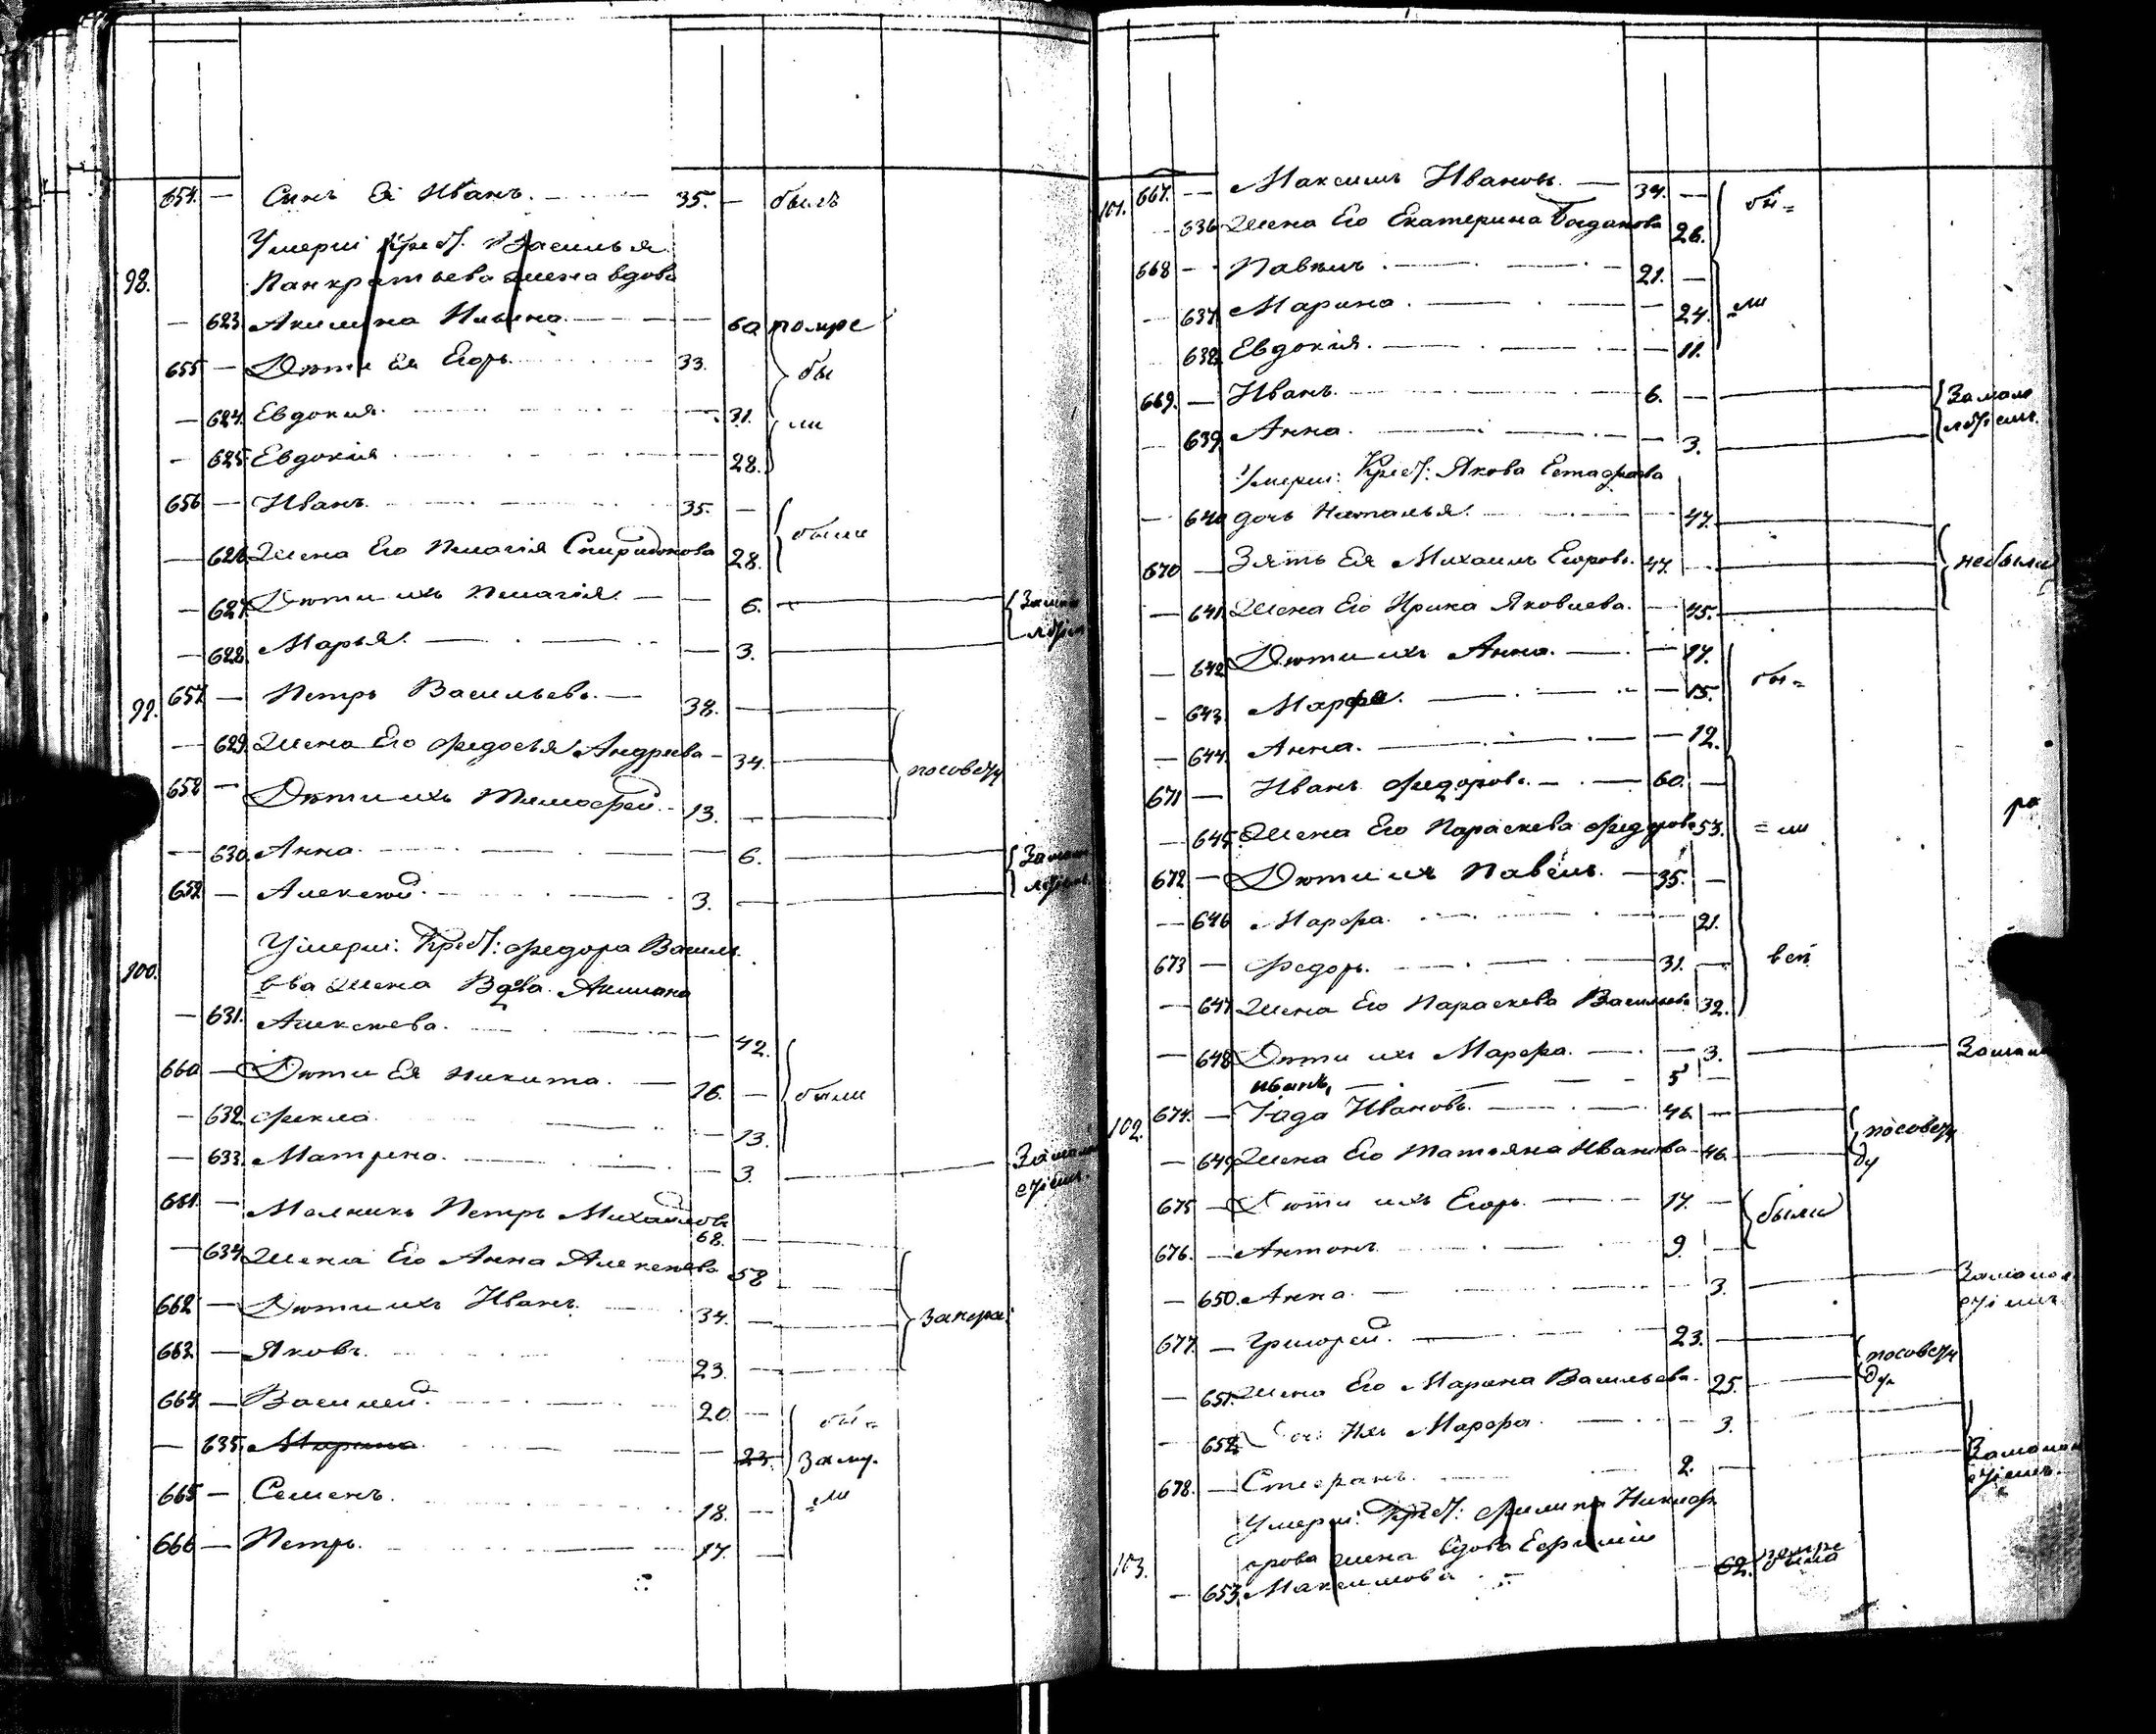 654. — Сынъ Ея Иванъ. — 35. — былъ
Умерш: Крест: Василья
98. Панкратьева жена вдова
— 623. Акилина Ильина. — — 60 помре
655 — Дѣти Ея Егоръ. 33. бы
— 624. Евдокия. — 31. ли
— 625. Евдокія — 28.
656 — Иванъ. 35. —
— 626. Жена Его Пелагія Спиридонова 28. были
— 627. Дѣти ихъ Пелагія. — — 6. —
— 628. Марья. — — 3. —
99. 657. — Петръ Васильевъ. — 38. —
— 629. Жена Его Ѳедосья Андреева — 34. —
658 — Дѣти ихъ Тимоѳей. — 13. —
— 630. Анна. — — 6. —
659. — Алексѣй. — 3. —
Умерш: Крест: Ѳедора Василь
100. ева жена Вдова Акилина
— 631. Алексѣева. — — 42.
660 — Дѣти Ея Никита. — 16. — были
— 632. Ѳекла — 13.
— 633. Матрена. — — 3. —
661. — Петръ Михайловъ 68. —
— 634. Жена Его Анна Алексѣева 58 —
662. — Дѣти ихъ Иванъ. 34. —
663. — Яковъ. 23. —
664. — Василей. 20. — бы=
— 635. Марина — 23. заму.
665 — Семенъ. 18. — =ли
666 — Петръ. 17. —
101. 667. — Максимъ Ивановъ. — 34. — бы=
636 Жена Его Екатерина Богданова 26.
668 — Павелъ. — 21. —
— 637. Марина. — — 24. =ли
638. Евдокія. — — 11.
669. — Иванъ. 6. —
— 639. Анна. — — 3.
Умерш: Крест: Якова Естафьева
— 640 дочь Наталья. — 47.
670 — Зять Ея Михаилъ Егоровъ. 47. — небыли
— 641. Жена Его Ирина Яковлева. — 45.
— 642. Дѣти ихъ Анна. — — 17. бы=
— 643. Марфа. — — 15.
— 644. Анна. — — 12.
671 — Иванъ Ѳедоровъ. — — 60. —
— 645. Жена Его Параскева Ѳедорова 53. =ли
672 — Дѣти ихъ Павелъ. — 35. —
— 646 Марфа. — 21.
673 — Ѳедоръ. — 31. —
— 647. Жена Его Параскева Васильева 32.
— 648 Дѣти ихъ Марфа. — — 3. —
иванъ, — 5 —
102. 674. — Ивановъ. — 46. —
— 649. Жена Его Татьяна Иванова — 46. —
675 — Дѣти ихъ Егоръ. — 17. — были
676. — Антонъ. 9. —
— 650. Анна. — — 3. —
677. — Григорей. — 23. —
— 651. Жена Его Марина Васильева. 25. —
— 652. Дочь Ихъ Марфа. — — 3.
678. — Стефанъ. 2. —
Умерш: Крест: Филипа Никиф
103. орова жена вдова
— 653. Максимова — 62.